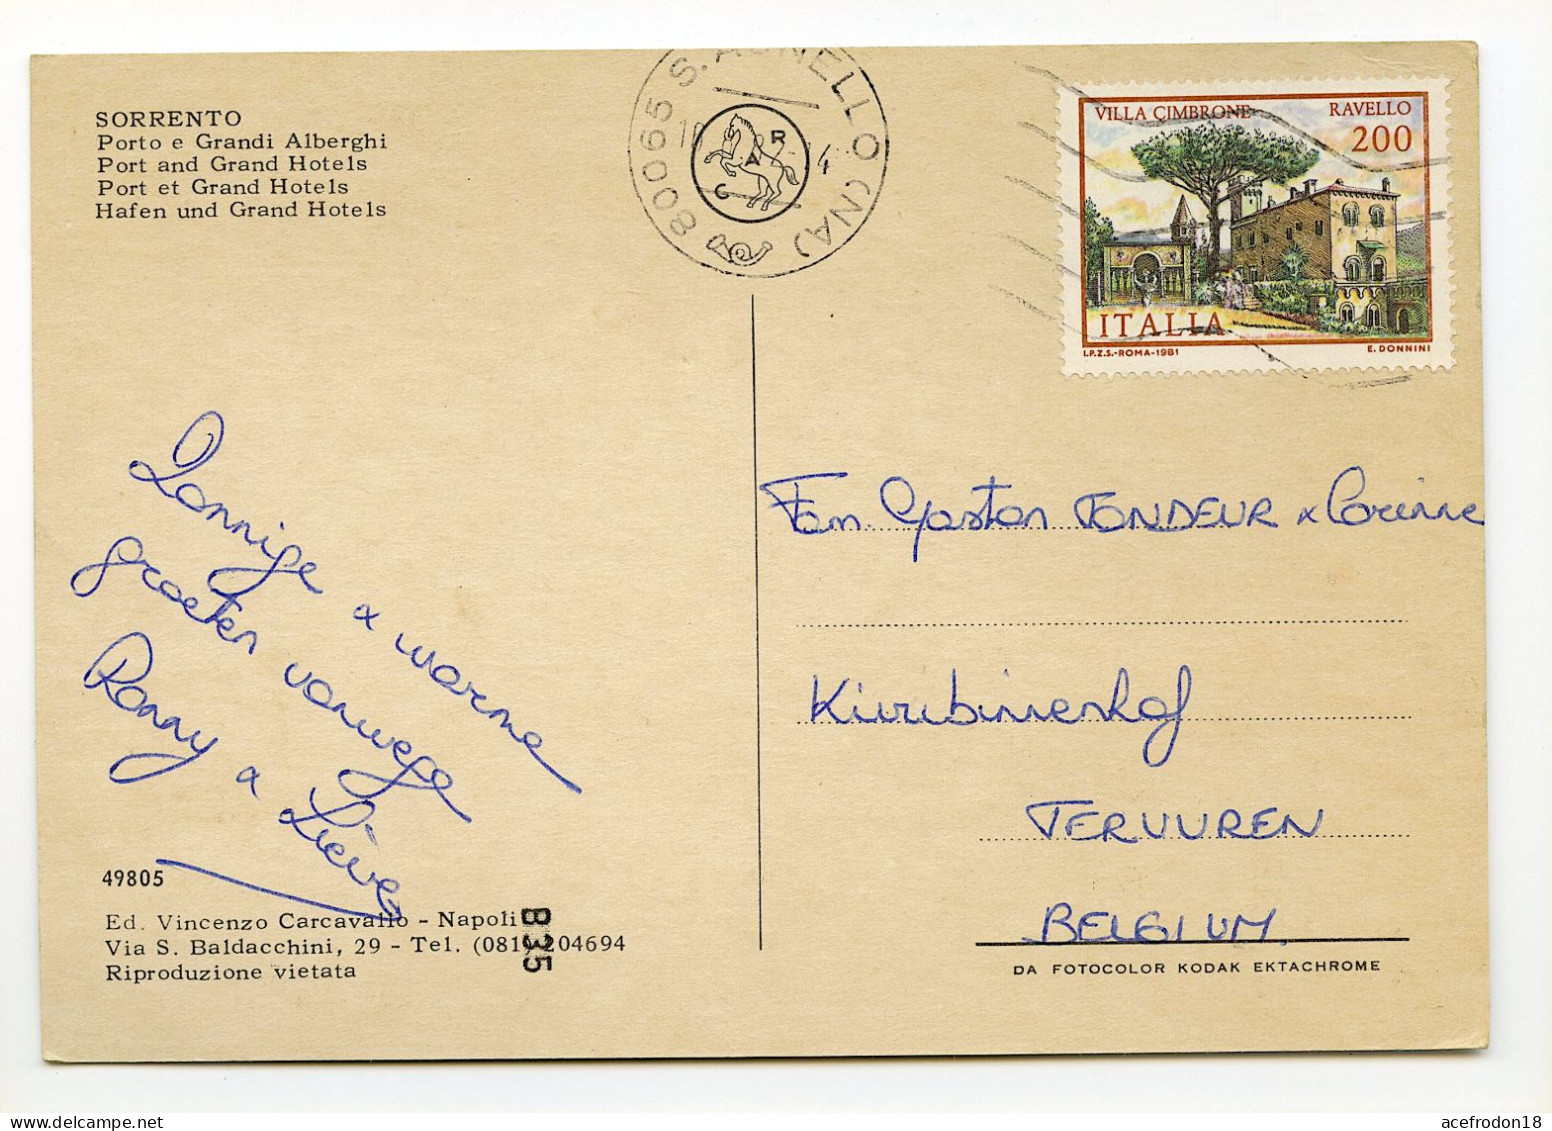 SORRENTO
Porto e Grandi Alberghi
Port and Grand Hotels
Port et Grand Hotels
Hafen und Grand Hotels
80065 S. AGNELLO (NA)
VILLA CIMBRONE RAVELLO
200
ITALIA
I.P.Z.S.-ROMA-1981 E. DONNINI
Zonnige & warme
groeten vanwege
Ronny & Lieve
Fam. Gaston TONDEUR & Corinne
TERVUREN
BELGIUM.
49805
Ed. Vincenzo Carcavallo - Napoli
Via S. Baldacchini, 29 - Tel. (081) 204694
Riproduzione vietata
B35
DA FOTOCOLOR KODAK EKTACHROME
acefrodon18